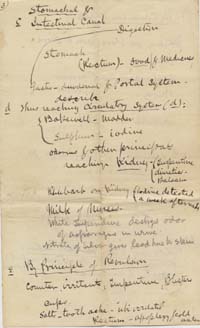 Stomachal &
£ Intestinal Canal
Digestion
Stomach
(Rectum) - Food & Medicines
Gastro-duodenal & Portal System -
describe
d Thus reaching Circulatory System (d):
Bakewell - Madder
Sulphur - iodine
osmins & other principles
reaching Kidney - Turpentine
diuretics
Balsam
Rhubarb on Kidney - Iodine detected
a week afterwards
Milk of Nurses
White Turpentine destroys odor
of asparagus in urine
Nitrate of silver gives lead hue to skin
e By Principle of Revulsion
Counter irritants, Turpentine, Blister
cups
Salt - tooth ache -
Rectum - apoplexy/cold